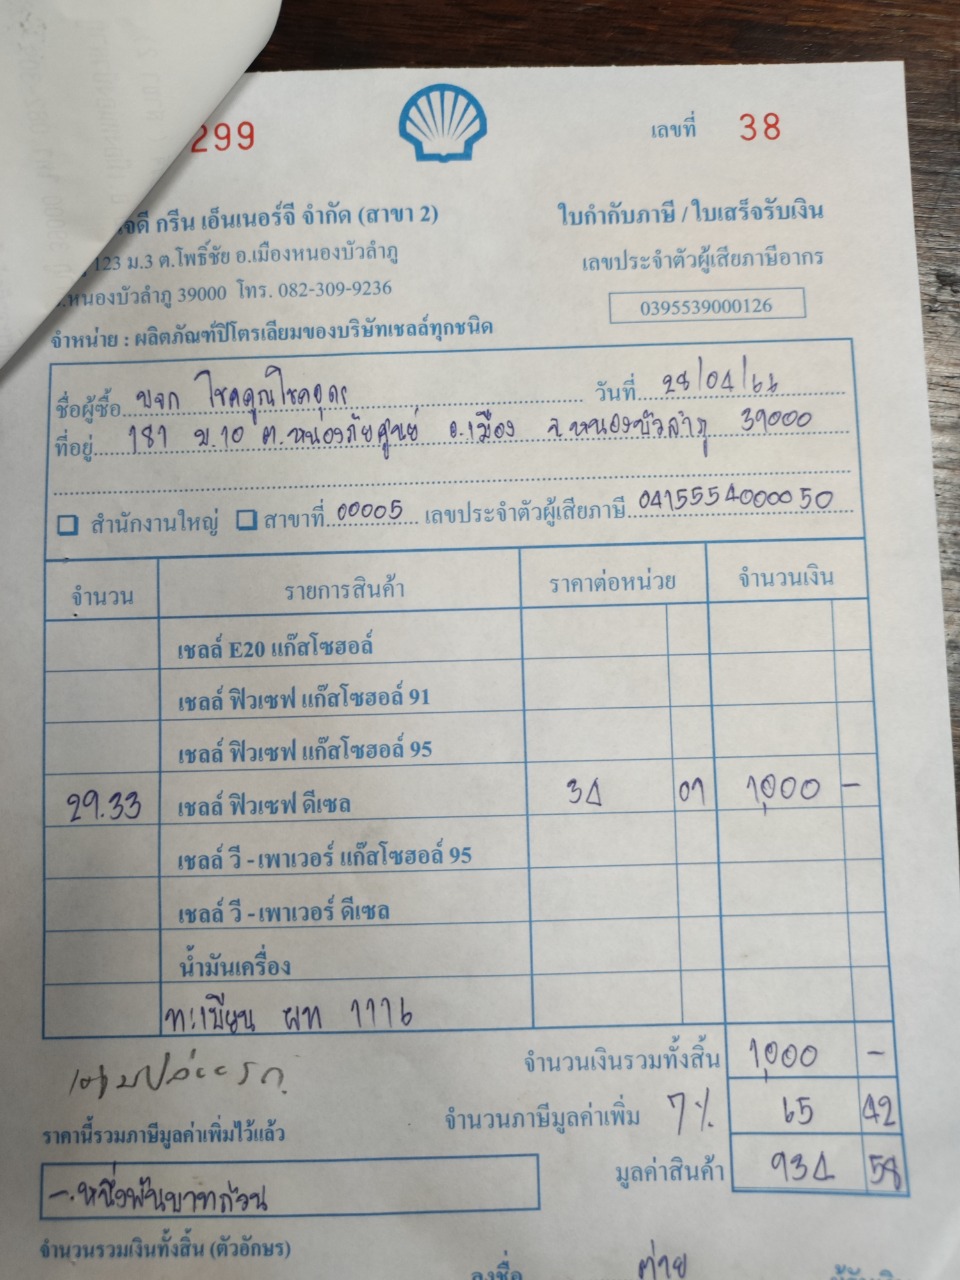 299
เลขที่ 38
จดี กรีน เอ็นเนอร์จี จำกัด (สาขา 2)
ใบกำกับภาษี / ใบเสร็จรับเงิน
123 ม.3 ต.โพธิ์ชัย อ.เมืองหนองบัวลำภู
เลขประจำตัวผู้เสียภาษีอากร
.หนองบัวลำภู 39000 โทร. 082-309-9236
0395539000126
จำหน่าย : ผลิตภัณฑ์ปิโตรเลียมของบริษัทเชลล์ทุกชนิด
ชื่อผู้ซื้อ บจก โชคคูณโชคอุดร วันที่ 28/04/66
ที่อยู่ 181 ม.10 ต.หนองภัยศูนย์ อ.เมือง จ.หนองบัวลำภู 39000
สำนักงานใหญ่ สาขาที่ 00005 เลขประจำตัวผู้เสียภาษี 0415554000050
จำนวน รายการสินค้า ราคาต่อหน่วย จำนวนเงิน
เชลล์ E20 แก๊สโซฮอล์
เชลล์ ฟิวเซฟ แก๊สโซฮอล์ 91
เชลล์ ฟิวเซฟ แก๊สโซฮอล์ 95
29.33 เชลล์ ฟิวเซฟ ดีเซล 34 09 1,000 -
เชลล์ วี - เพาเวอร์ แก๊สโซฮอล์ 95
เชลล์ วี - เพาเวอร์ ดีเซล
น้ำมันเครื่อง
ทะเบียน ผท 1116
จำนวนเงินรวมทั้งสิ้น 1,000 -
จำนวนภาษีมูลค่าเพิ่ม 7% 65 42
ราคานี้รวมภาษีมูลค่าเพิ่มไว้แล้ว
มูลค่าสินค้า 934 58
-.หนึ่งพันบาทถ้วน
จำนวนรวมเงินทั้งสิ้น (ตัวอักษร)
ลงชื่อ ต่าย